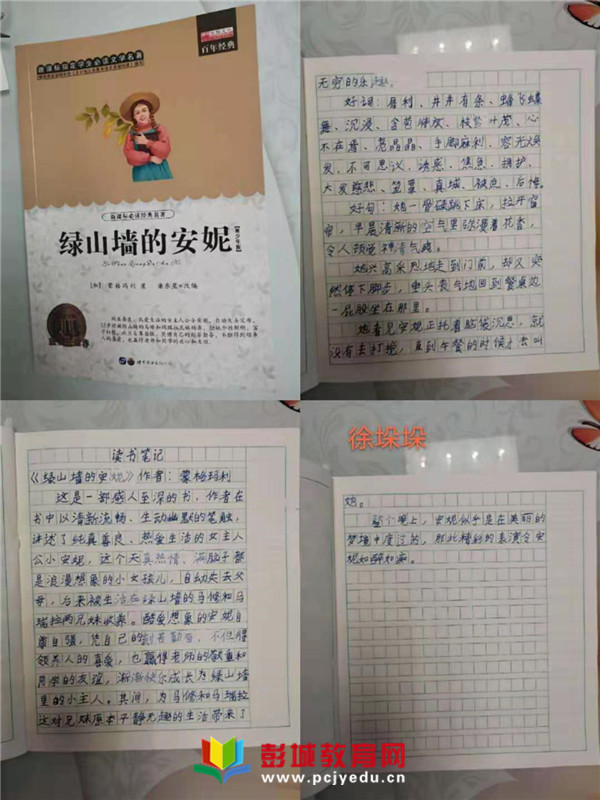 新课标指定学生必读文学名著
百年经典
新课标必读经典名著
绿山墙的安妮
[加]蒙格玛利 著
无穷的乐趣。
好词：犀利、井井有条、蜂飞蝶
舞、沉浸、含苞
不在焉、亮晶晶、手脚麻利、容光焕
发、不可思议、诱惑、焦急、拥护、
大发慈悲、笼罩、真诚、被迫、后悔。
好句：她一骨碌跳下床，拉开窗
帘，早晨清新的空气里弥漫着花香，
令人顿觉神清气爽。
她兴高采烈地走到门前，却又突
然停下脚步，垂头丧气地回到餐桌边
一屁股坐在那里。
她看见安妮正托着脸袋沉思，就
没有去打扰，直到午餐的时候才去叫
读书笔记
《绿山墙的安妮》作者：蒙格玛利
这是一部感人至深的书，作者在
书中以清新流畅、生动幽默的笔触，
讲述了纯真善良、热爱生活的女主人
公小安妮，这个天真热情、满脑子都
是浪漫想象的小女孩儿，自幼失去父
母，后来被生活在绿山墙的马修和马
瑞拉两兄妹收养。酷爱想象的安妮自
尊自强，凭自己的刻苦勤奋，不但得
领养人的喜爱，也赢得老师的敬重和
同学的友谊，渐渐快乐成长为绿山墙
里的小主人。其间，为马修和马瑞拉
这对兄妹原本平静无趣的生活带来了
徐垛垛
她。
整个晚上，安妮似乎是在美丽的
梦境中度过的，那些精彩的表演令安
妮如醉如痴。
彭城教育网
www.pcjyedu.cn